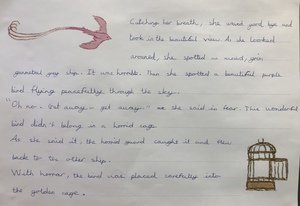 Catching her breath, she waved good bye and
took in the beautiful view. As she looked
around, she spotted a weird,
grey ship. It was horrible. Then she spotted a beautiful purple
bird flying peacefully through the sky.
"Oh no - Get away - get away -" she said in fear. This wonderful
bird didn't belong in a horrid cage.
As she said it, the horrid guard caught it and flew
back to the other ship.
With horror, the bird was placed carefully into
the golden cage.